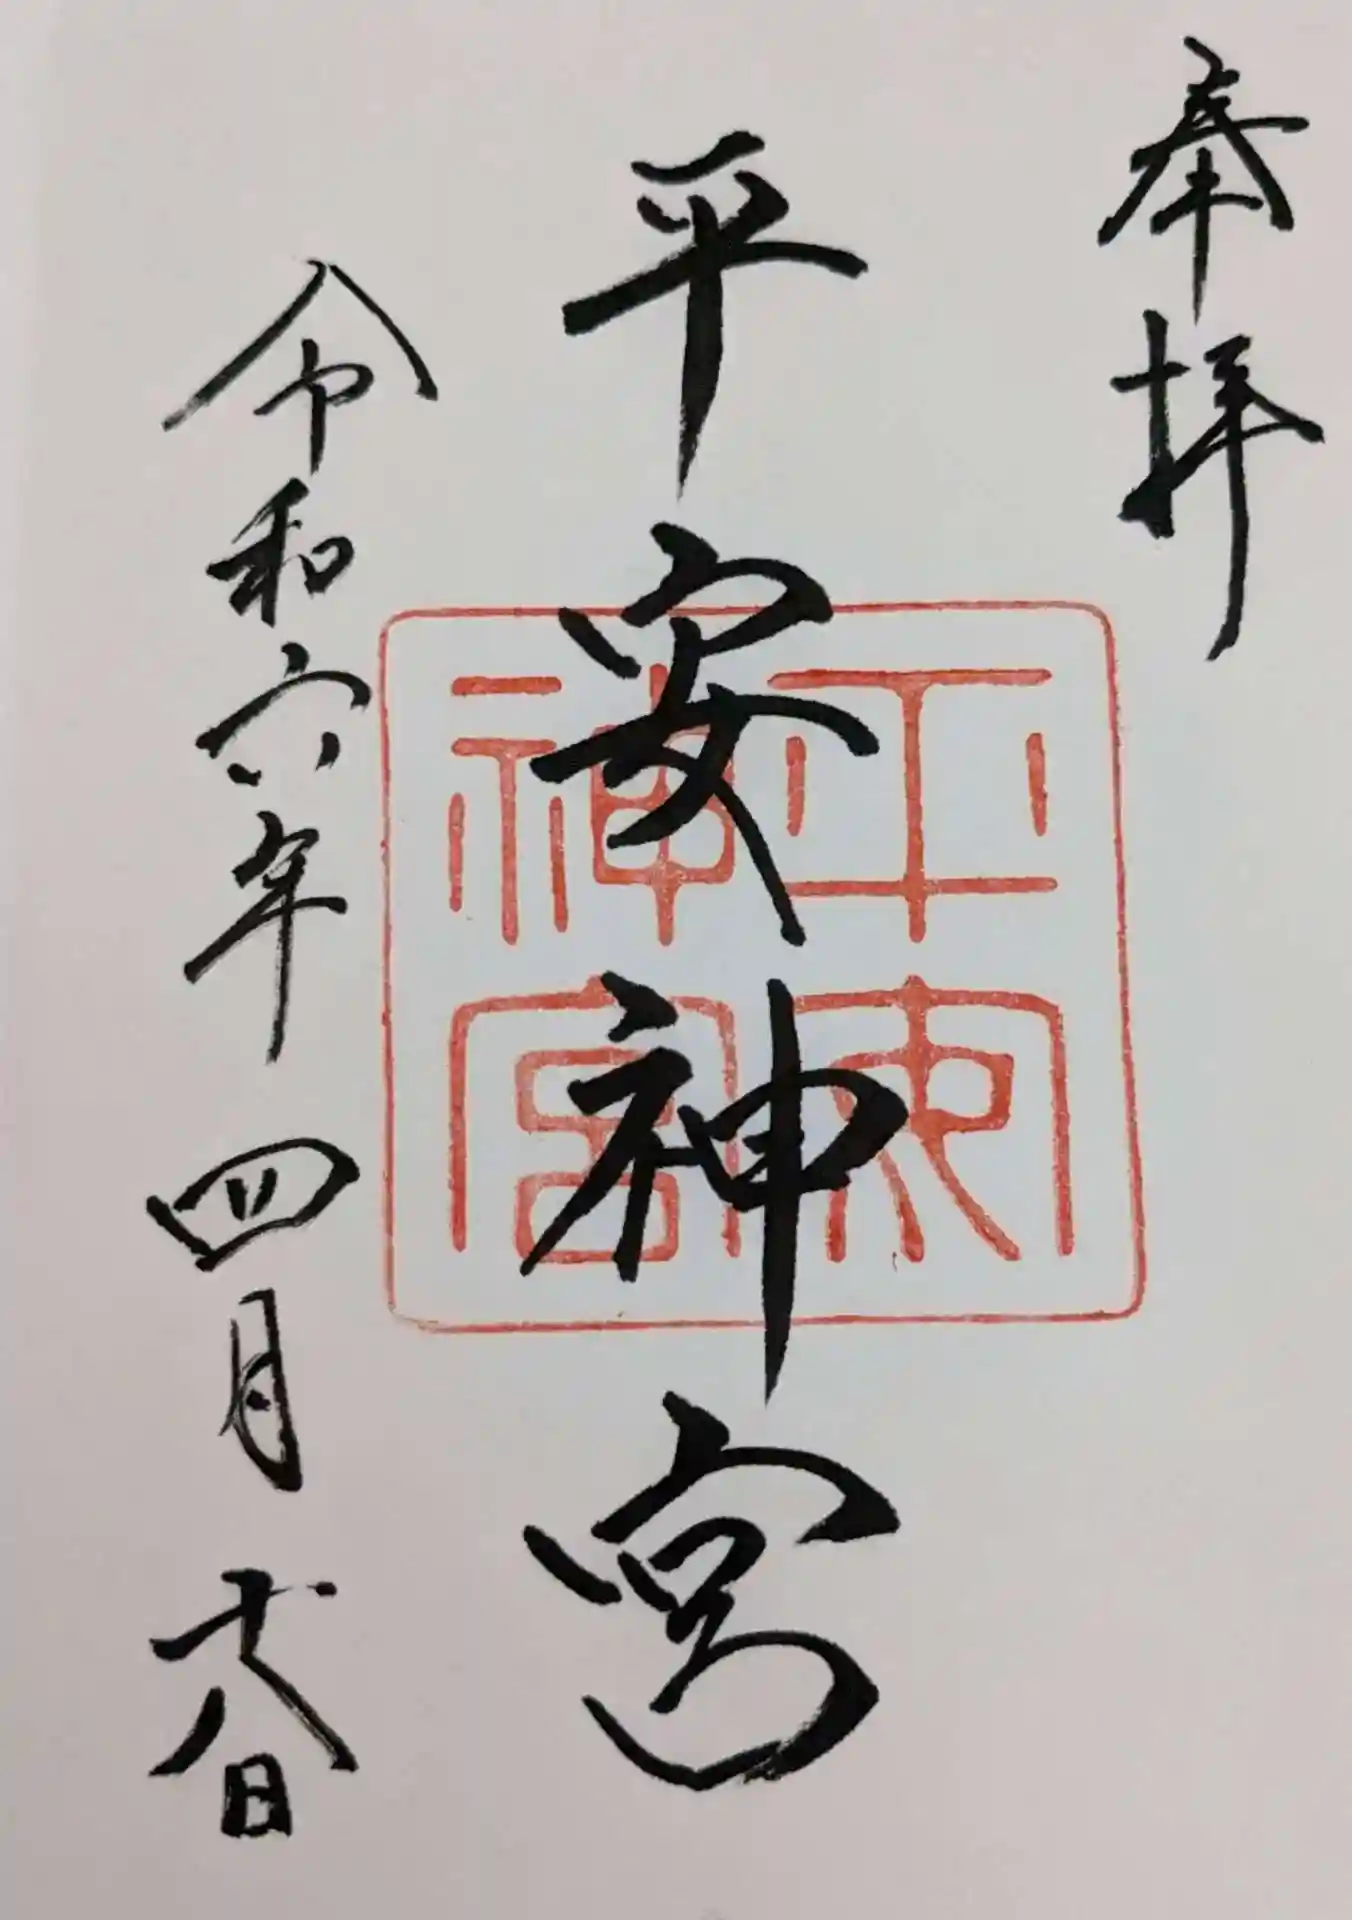 奉拝
平安神宮
平安
神宮
令和六年四月十八日